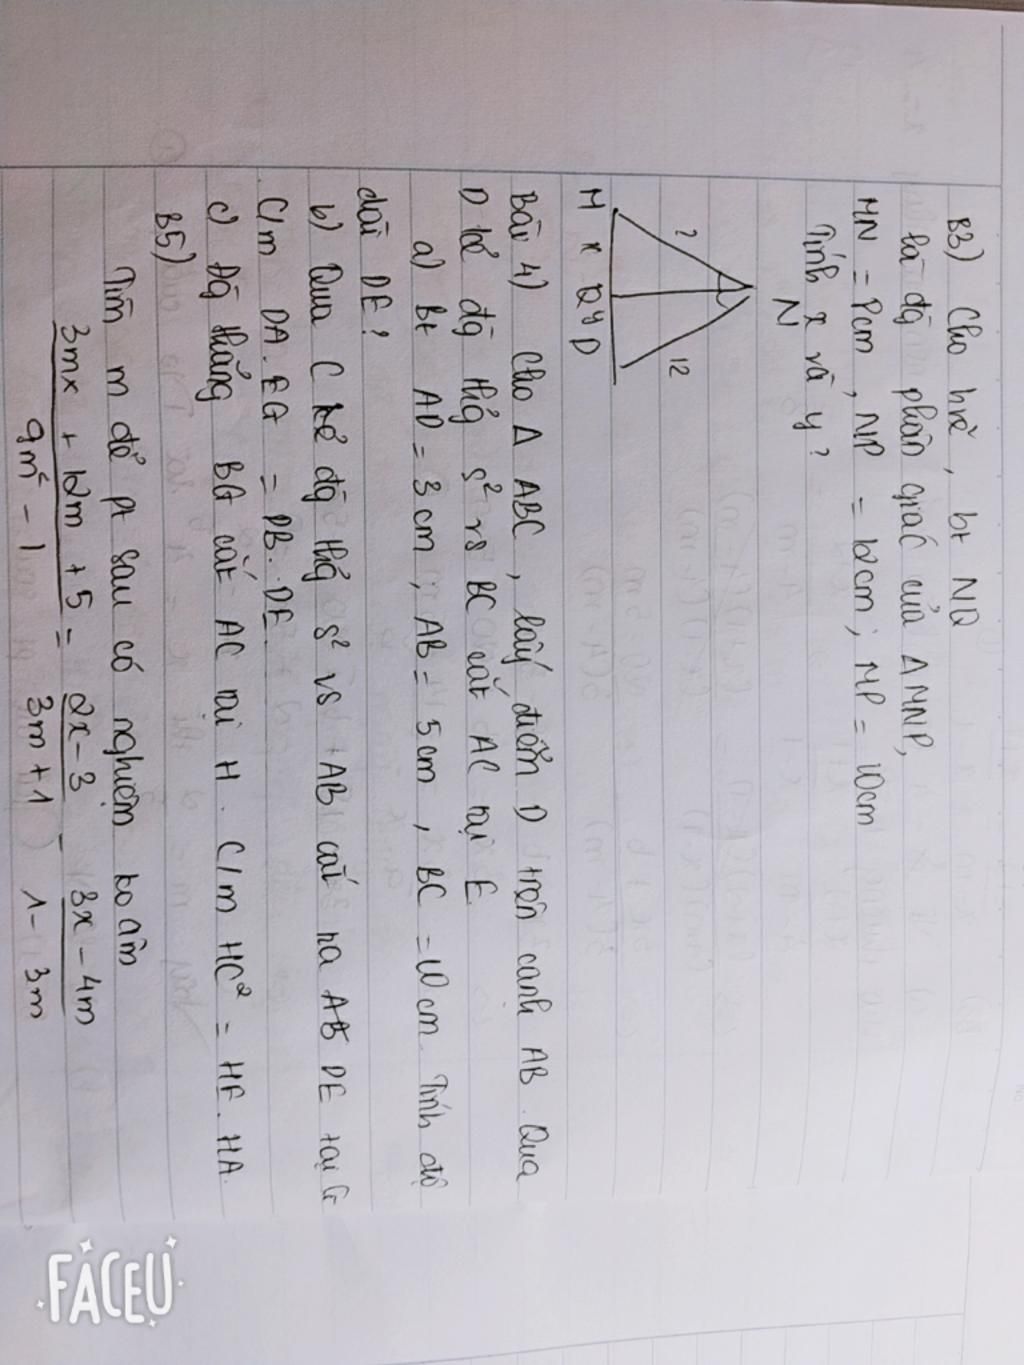 B3) Cho hvẽ, bt NQ
là đg phân giác của Δ MNP,
MN = Pcm, NP = 12cm; MP = 10cm
Tính x và y?
N
? 12
M x Q y D
Bài 4) Cho Δ ABC, lấy điểm D trên cạnh AB. Qua
D kẻ đg thg s² vs BC cắt AC tại E
a) Bt AD = 3cm, AB = 5cm, BC = 10cm. Tính độ
dài DE?
b) Qua C kẻ đg thg s² vs AB cắt DE tại G
C/m DA.EG = DB.DE
c) Đg thẳng BG cắt AC tại H. C/m HC² = HE.HA.
B5)
Tìm m để pt sau có nghiệm ko âm
3mx + 12m + 5 = 2x - 3 - 3x - 4m
9m² - 1 3m + 1 1 - 3m
FACEU